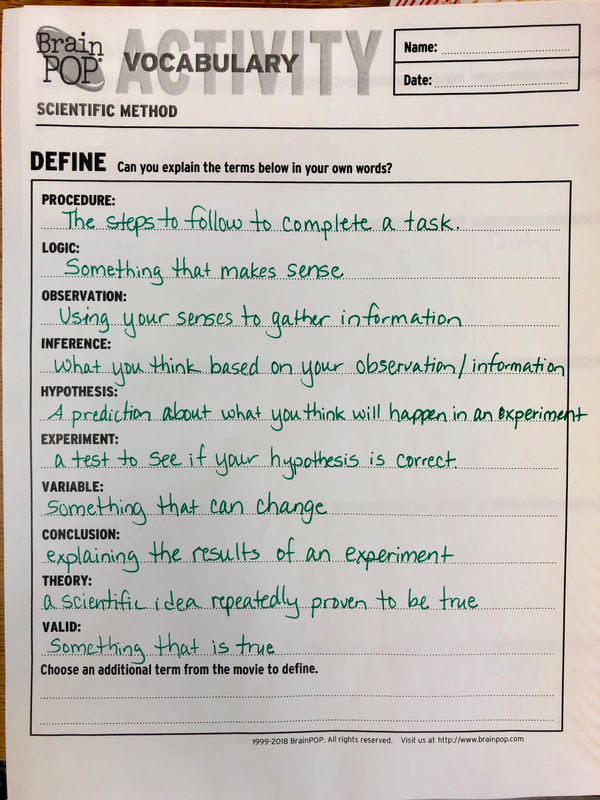 Brain POP ACTIVITY VOCABULARY
Name:
Date:
SCIENTIFIC METHOD
DEFINE Can you explain the terms below in your own words?
PROCEDURE:
The steps to follow to complete a task.
LOGIC:
Something that makes sense
OBSERVATION:
Using your senses to gather information
INFERENCE:
What you think based on your observation/information
HYPOTHESIS:
A prediction about what you think will happen in an experiment
EXPERIMENT:
a test to see if your hypothesis is correct.
VARIABLE:
Something that can change
CONCLUSION:
explaining the results of an experiment
THEORY:
a scientific idea repeatedly proven to be true
VALID:
Something that is true
Choose an additional term from the movie to define.
1999-2018 BrainPOP. All rights reserved. Visit us at http://www.brainpop.com